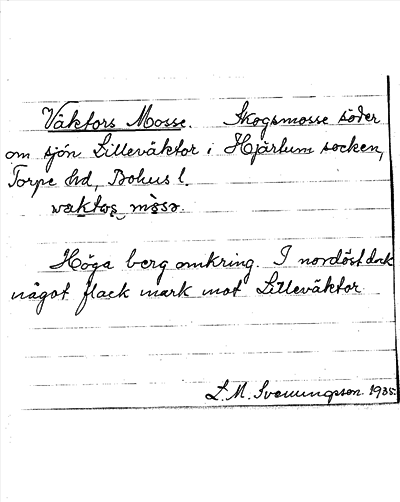 Väktors Mosse. Skogsmosse söder
om sjön Lilleväktor i Hjärtum socken,
Torpe hd, Bohus l.
Höga berg omkring. I nordöst dock
något flack mark mot Lilleväktor
L. M. Svenungsson 1935.